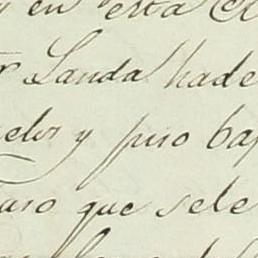 y en esta C
r Landa hade
uelos y piso baj
uso que sele